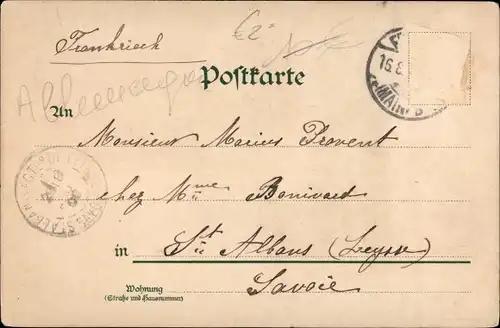 Frankreich
€2
Allemagne
Postkarte
16.8.
(MAIN)
An
Monsieur Marius Provent
chez Mme Bonivard
in St Albans (Leysse)
Savoie
Wohnung
(Straße und Hausnummer)